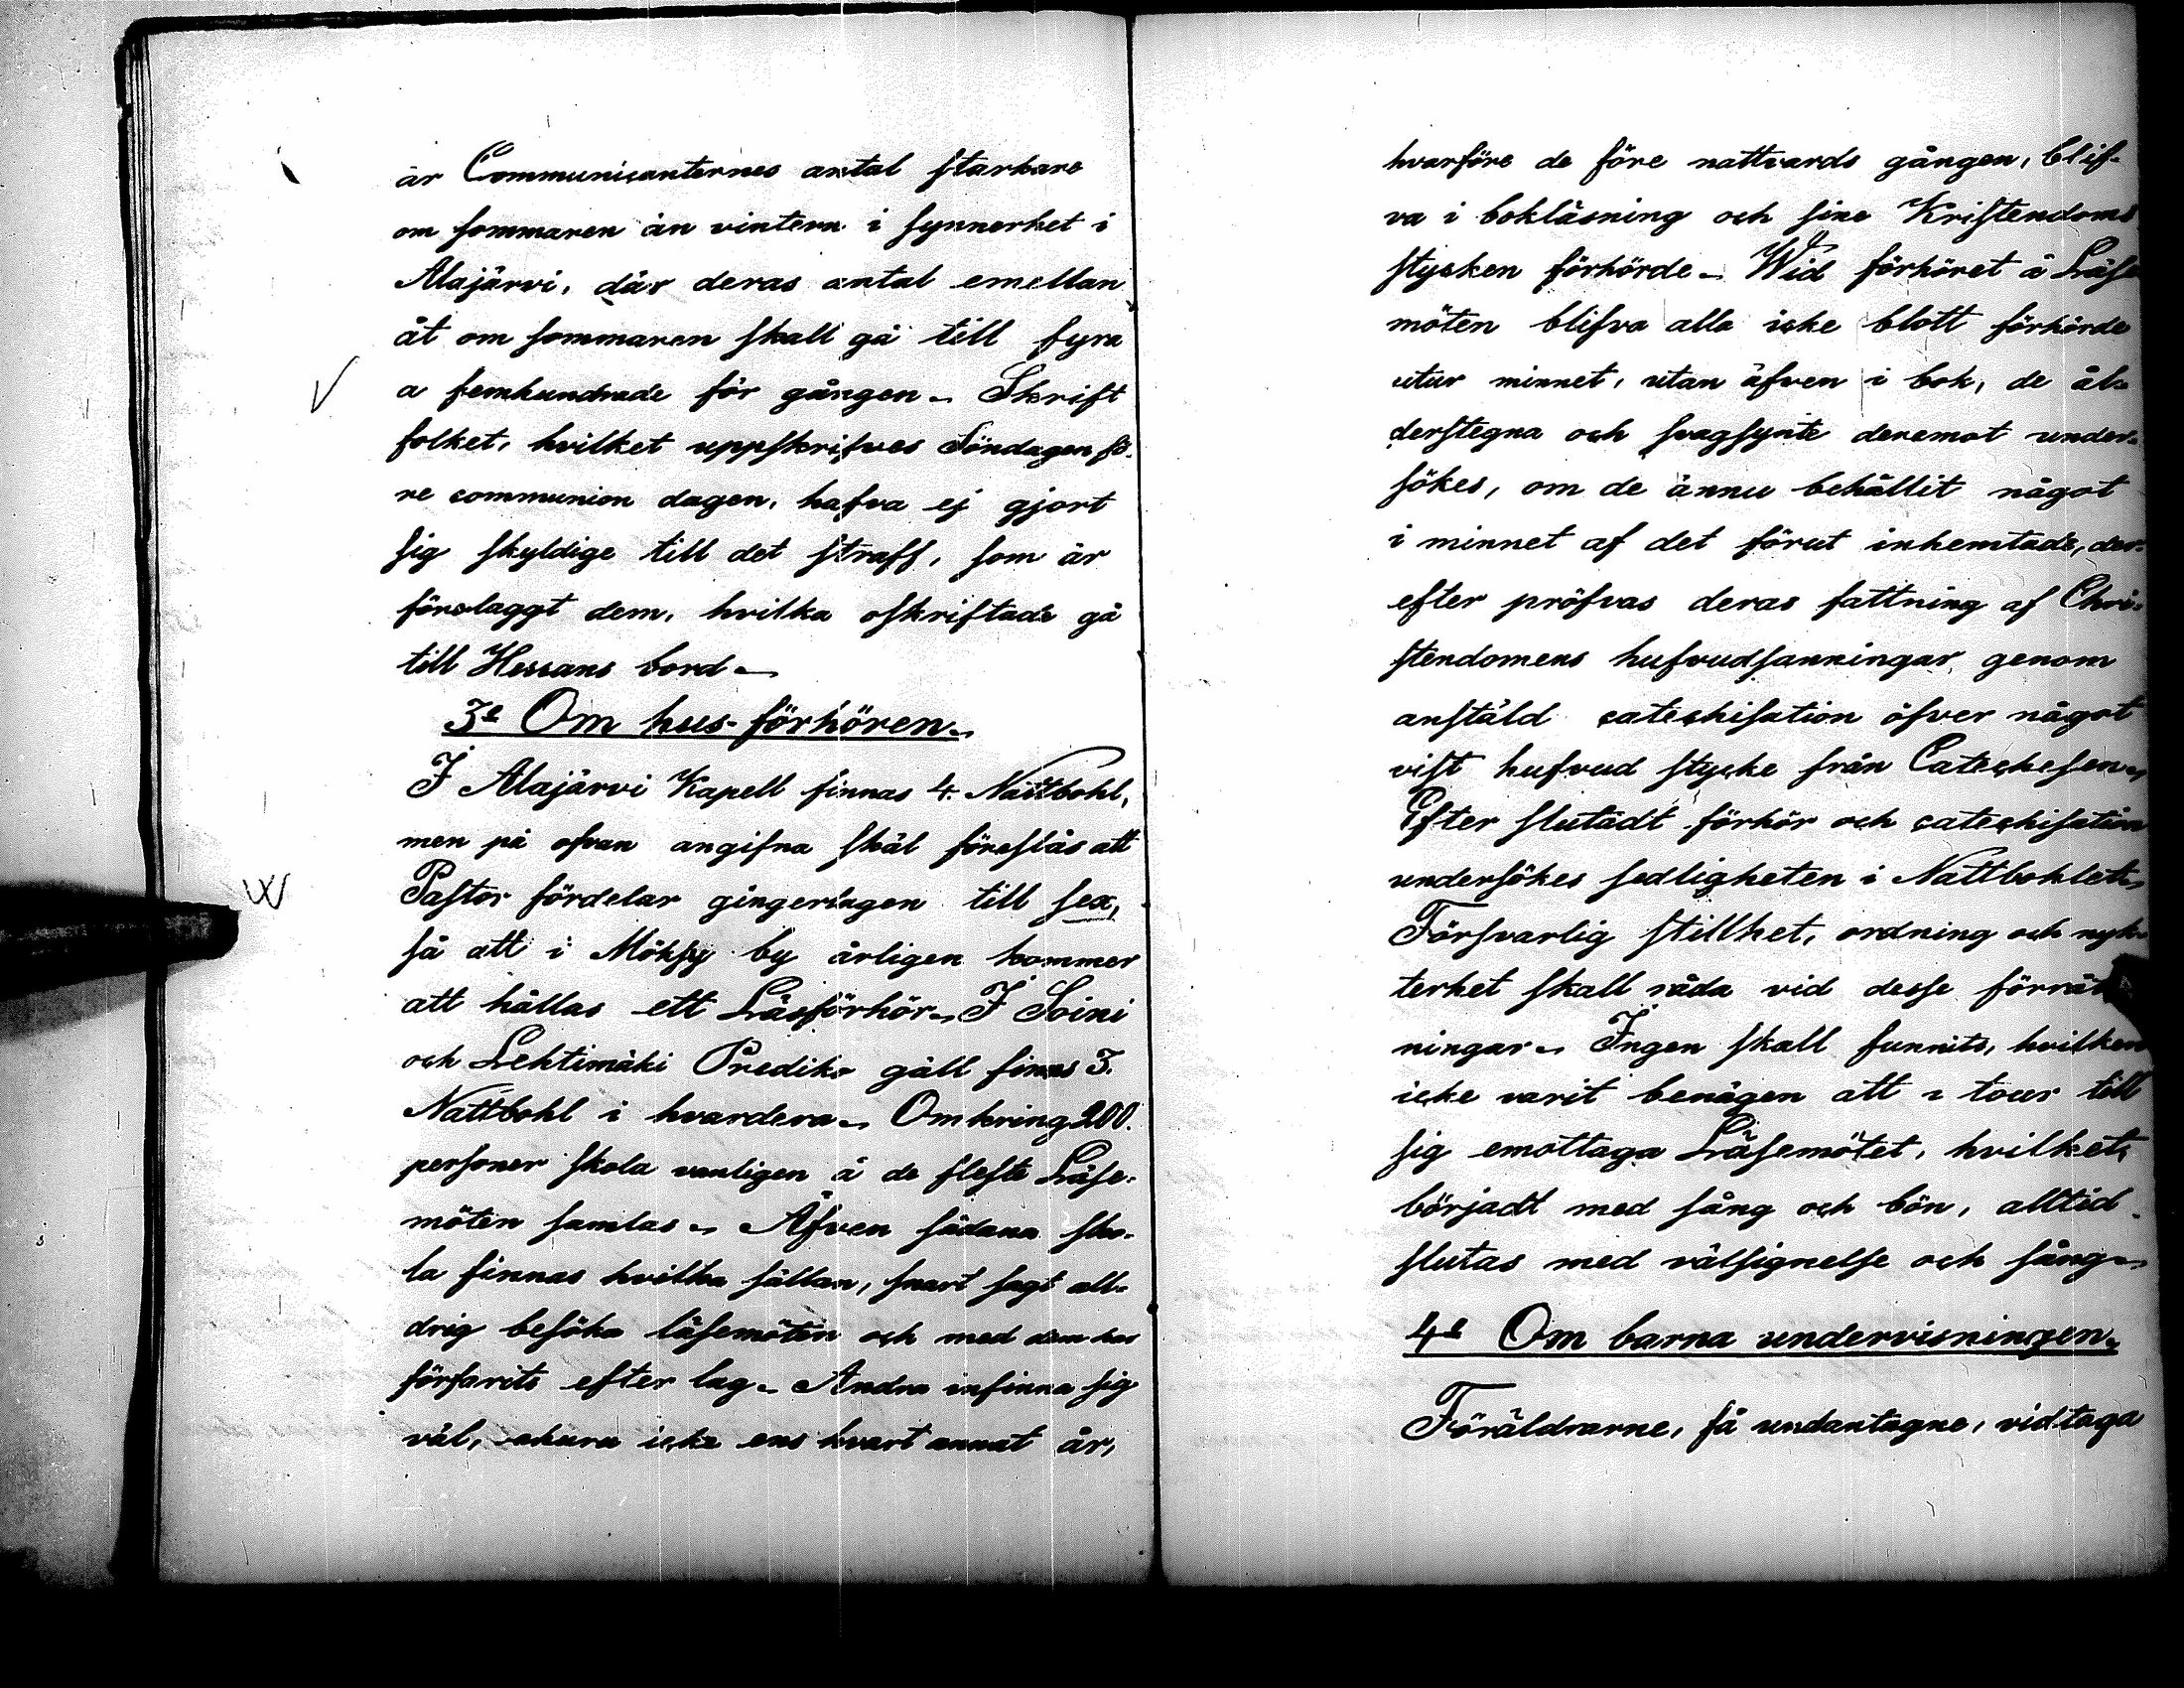 är Communicanternes antal starkare
om sommaren än vintern i synnerhet i
Alajärvi, där deras antal emellan
åt om sommaren skall gå till fyra
a femhundrade för gången. Skrift
folket, hvilket uppskrifves Söndagen fö-
re communion dagen, hafva ej gjort
sig skyldige till det straff, som är
förelaggt dem, hvilka oskriftade gå
till Herrans bord.
3e Om hus-förhören.
I Alajärvi Kapell finnas 4. Nattbohl,
men på ofvan angifna skäl föreslås att
Pastor fördelar gingerlagen till sex,
så att i Möksy by årligen kommer
att hållas ett Läsförhör. I Soini
och Lehtimäki Prediko gäll finnas 3.
Nattbohl i hvardera. Omkring 200.
personer skola vanligen å de fleste Läse-
möten samlas. Äfven sådana sko-
la finnas hvilka sällan, snart sagt all-
drig besöka läsemöten och med dem har
förfarits efter lag. Andra infinna sig
väl, ehuru icke ens hvart annat år,
hvarföre de före nattvards gången, blif-
va i bokläsning och sine Kristendoms
stycken förhörde. Wid förhöret å Läse
möten blifva alla icke blott förhörde
utur minnet, utan äfven i bok, de ål-
derstegna och svagsynte deremot under-
sökes, om de ännu behållit något
i minnet af det förut inhemtade, der-
efter pröfvas deras fattning af Chri-
stendomens hufvudsanningar genom
anstäld catechisation öfver något
vist hufvud stycke från Catechesen.
Efter slutadt förhör och catechisation
undersökes sedligheten i Nattbohlet.
Försvarlig stillhet, ordning och nyk-
terhet skall råda vid desse förrätt
ningar. Ingen skall funnits, hvilken
icke varit benägen att i tour till
sig emottaga Läsemötet, hvilket,
börjadt med sång och bön, alltid
slutas med välsignelse och sång.
4e Om barna undervisningen.
Föräldrarne, få undantagne, vidtaga